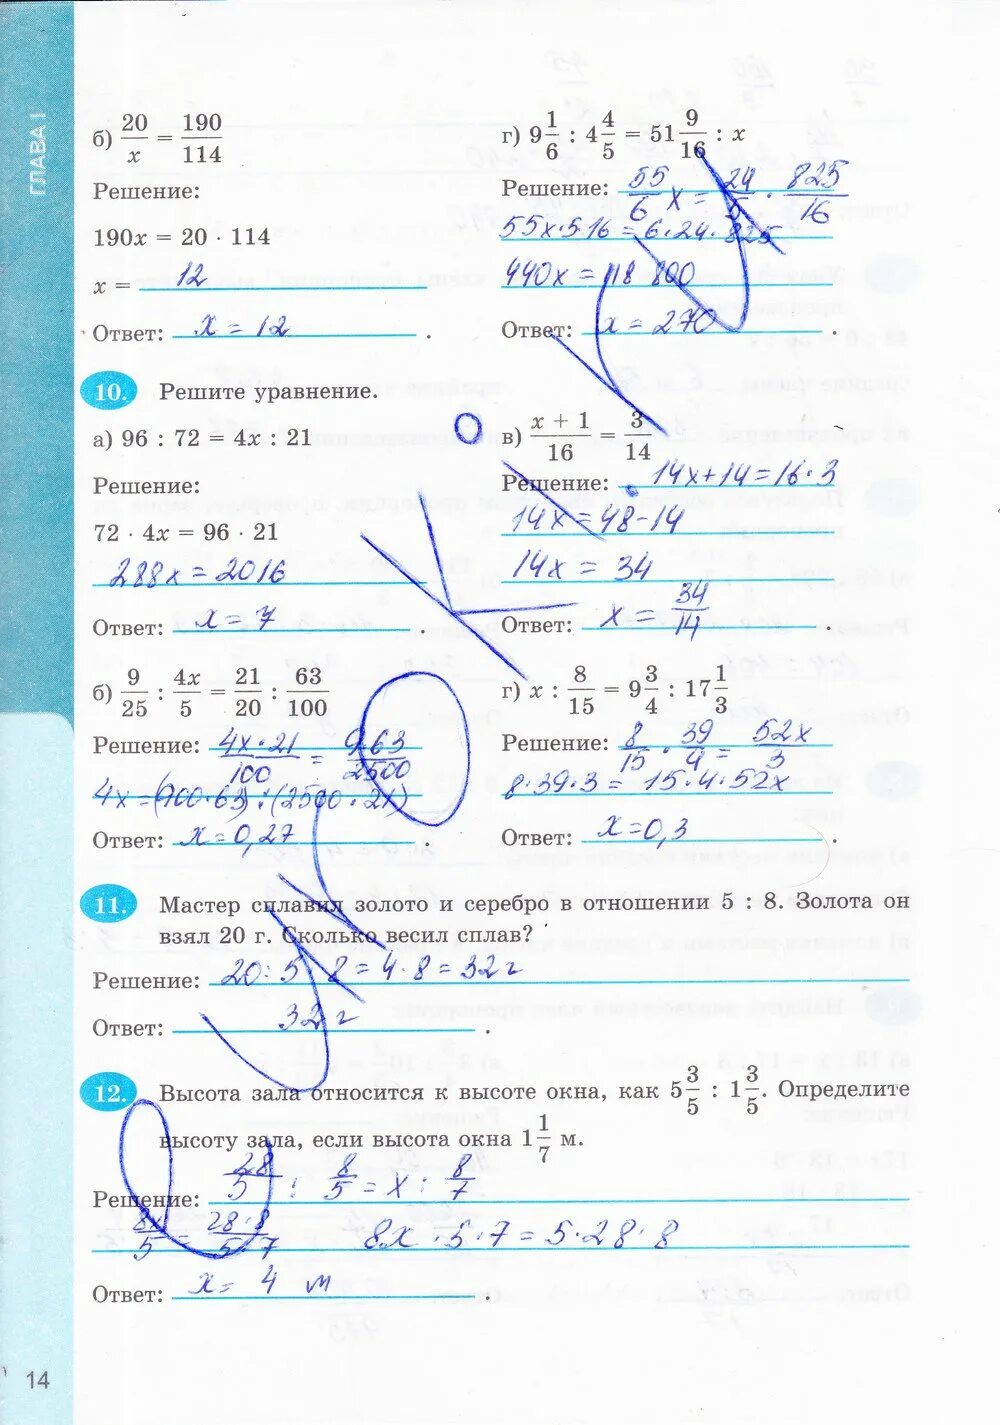 ГЛАВА I
б) 20/x = 190/114
Решение:
190x = 20 · 114
x = 12
Ответ: x = 12 .
г) 9 1/6 : 4 4/5 = 51 9/16 : x
Решение: 55/6 x = 24/5 · 825/16
55x·5·16 = 6·24·825
440x = 118 800
Ответ: x = 270 .
10. Решите уравнение.
а) 96 : 72 = 4x : 21
Решение:
72 · 4x = 96 · 21
288x = 2016
Ответ: x = 7 .
в) (x + 1)/16 = 3/14
Решение: 14x+14 = 16·3
14x = 48-14
14x = 34
Ответ: x = 34/14 .
б) 9/25 : 4x/5 = 21/20 : 63/100
Решение: 4x·21/100 = 9·63/2500
4x = (900·63) : (2500·21)
Ответ: x = 0,27 .
г) x : 8/15 = 9 3/4 : 17 1/3
Решение: 8/15 · 39/4 = 52x/3
8·39·3 = 15·4·52x
Ответ: x = 0,3 .
11. Мастер сплавил золото и серебро в отношении 5 : 8. Золота он
взял 20 г. Сколько весил сплав?
Решение: 20 : 5 · 8 = 4·8 = 32 г
Ответ: 32 г .
12. Высота зала относится к высоте окна, как 5 3/5 : 1 3/5. Определите
высоту зала, если высота окна 1 1/7 м.
Решение: 28/5 : 8/5 = x : 8/7
8x/5 = 28·8/5·7 8x·5·7 = 5·28·8
Ответ: x = 4 м .
14